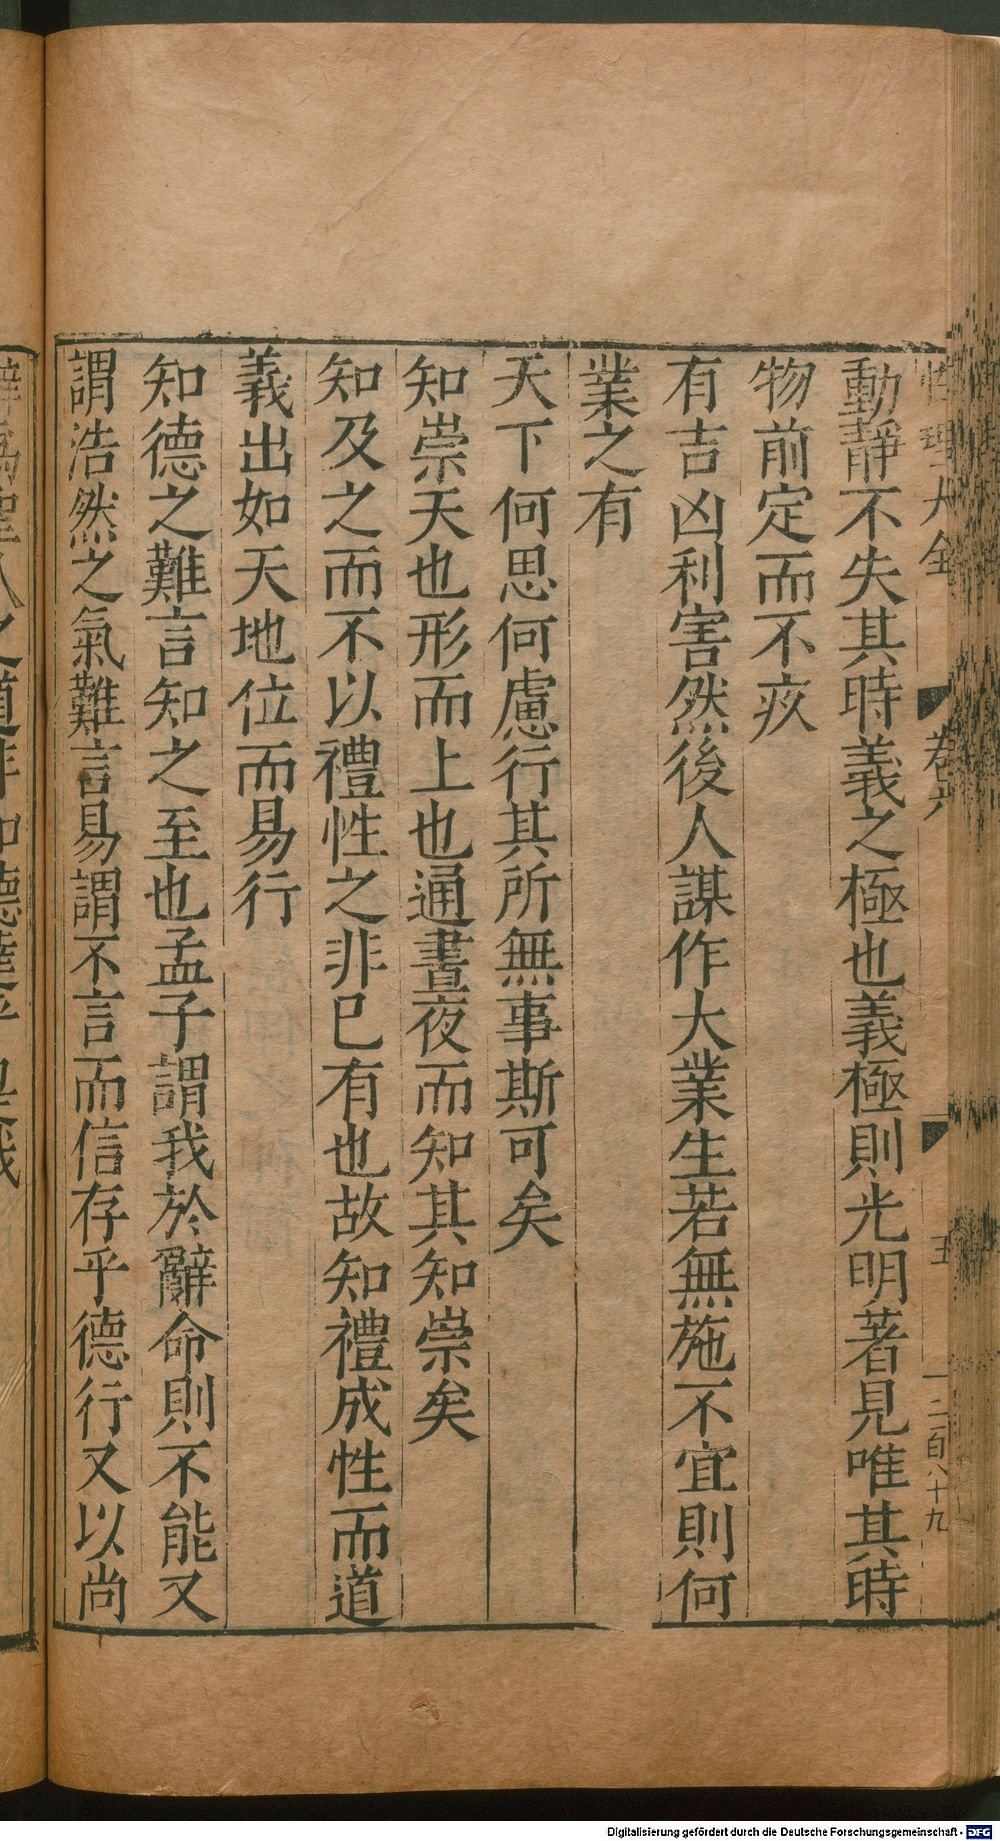 性理大全
卷六
五
一二百八十九
動靜不失其時義之極也義極則光明著見唯其時
物前定而不疚
有吉凶利害然後人謀作大業生若無施不宜則何
業之有
天下何思何慮行其所無事斯可矣
知崇天也形而上也通晝夜而知其知崇矣
知及之而不以禮性之非已有也故知禮成性而道
義出如天地位而易行
知德之難言知之至也孟子謂我於辭命則不能又
謂浩然之氣難言易謂不言而信存乎德行又以尚
Digitalisierung gefördert durch die Deutsche Forschungsgemeinschaft - DFG